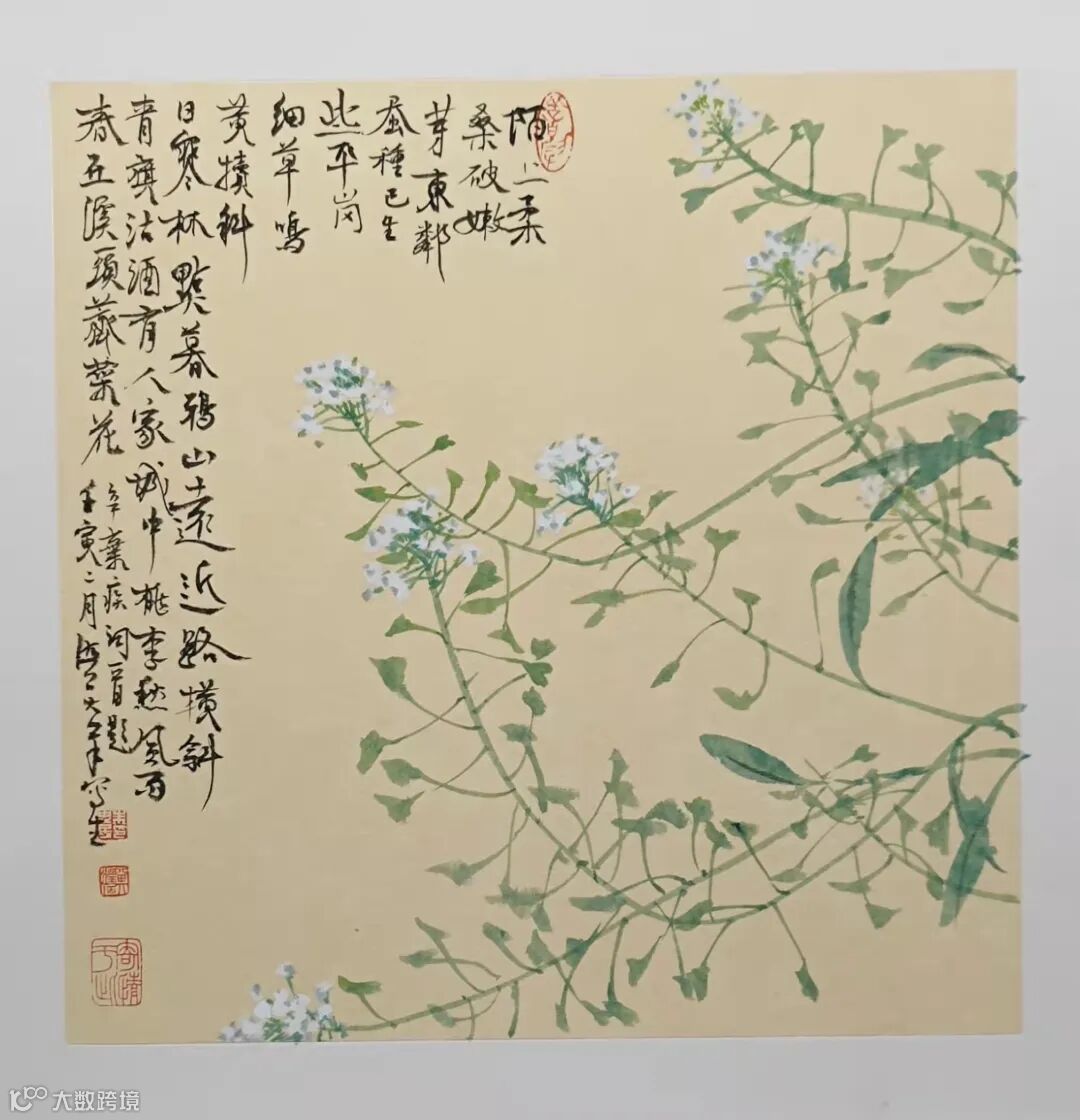 陌上柔
桑破嫩
芽東鄰
蚕種已生
些平岗
细草鳴
黄犢斜
日寒林點暮鴉山遠近路横斜
青旗沽酒有人家城中桃李愁風雨
春在溪頭薺菜花
辛棄疾词一首題
壬寅二月
写生
大数跨境